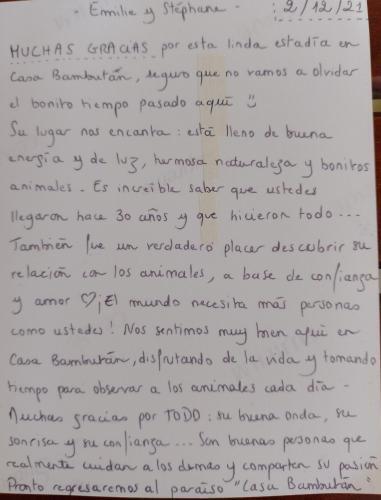 - Emilie y Stéphane - : 2/12/21
MUCHAS GRACIAS por esta linda estadía en
Casa Bambután, seguro que no vamos a olvidar
el bonito tiempo pasado aquí ☺
Su lugar nos encanta : está lleno de buena
energía y de luz, hermosa naturaleza y bonitos
animales. Es increíble saber que ustedes
llegaron hace 30 años y que hicieron todo ...
También fue un verdadero placer descubrir su
relación con los animales, a base de confianza
y amor ♡ ¡El mundo necesita más personas
como ustedes! Nos sentimos muy bien aquí en
Casa Bambután, disfrutando de la vida y tomando
tiempo para observar a los animales cada día -
Muchas gracias por TODO : su buena onda, su
sonrisa y su confianza ... Son buenas personas que
realmente cuidan a los demás y comparten su pasión
Pronto regresaremos al paraíso "Casa Bambután"